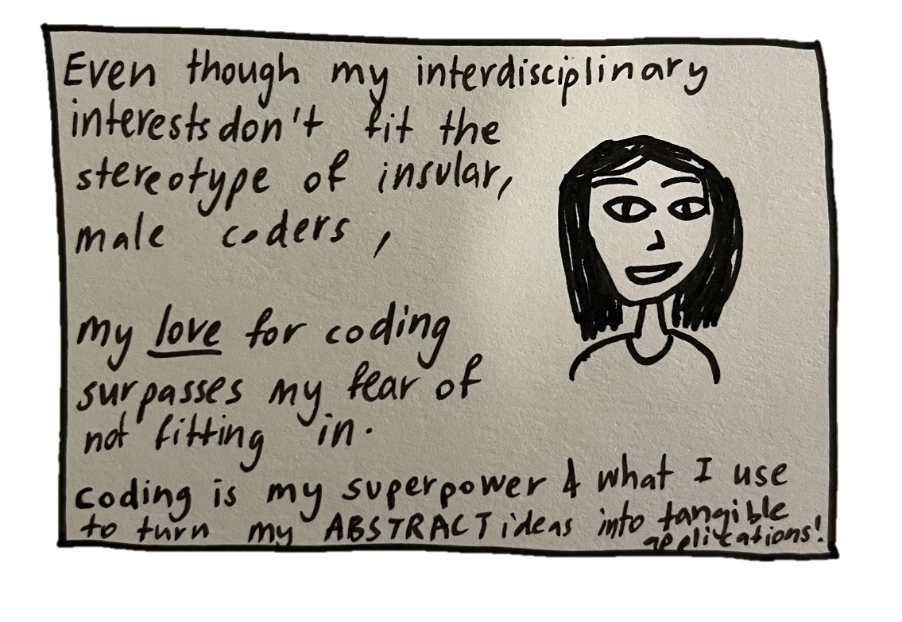 Even though my interdisciplinary
interests don't fit the
stereotype of insular,
male coders,
my love for coding
surpasses my fear of
not fitting in.
coding is my superpower & what I use
to turn my ABSTRACT ideas into tangible
applications!